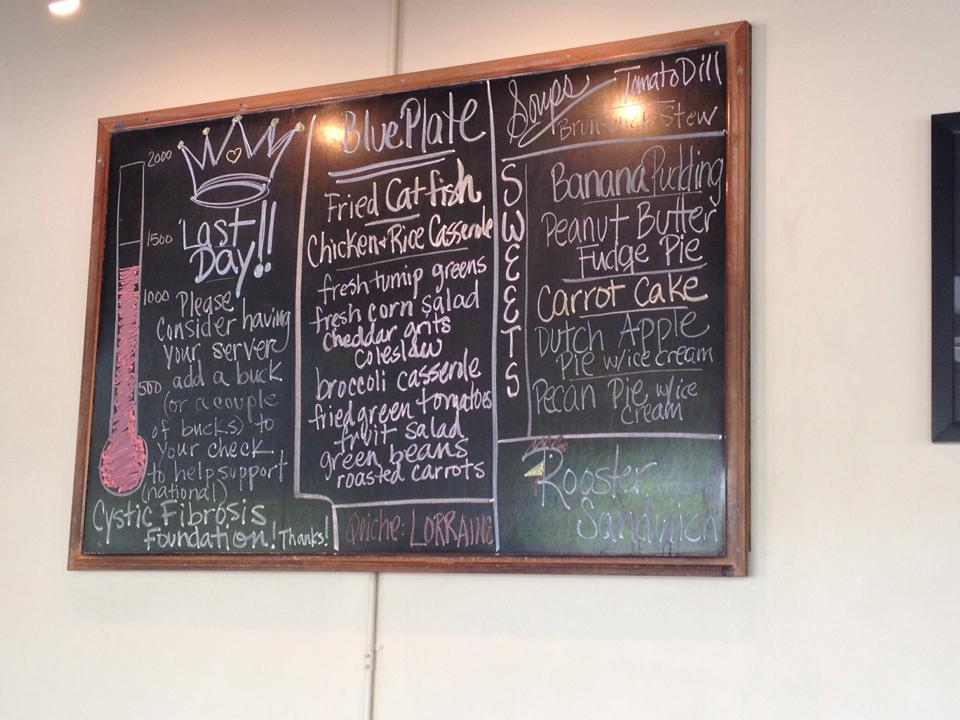 2000
1500
1000
500
Last
Day!!
Please
consider having
your server
add a buck
(or a couple
of bucks) to
your check
to help support
(national)
Cystic Fibrosis
Foundation! Thanks!
Blue Plate
Fried Catfish
Chicken + Rice Casserole
fresh turnip greens
fresh corn salad
cheddar grits
coleslaw
broccoli casserole
fried green tomatoes
fruit salad
green beans
roasted carrots
Quiche: LORRAINE
Soups
Tomato Dill
Brunswick Stew
SWEETS
Banana Pudding
Peanut Butter
Fudge Pie
Carrot Cake
Dutch Apple
Pie w/ice cream
Pecan Pie w/ice
cream
Rooster
Sandwich